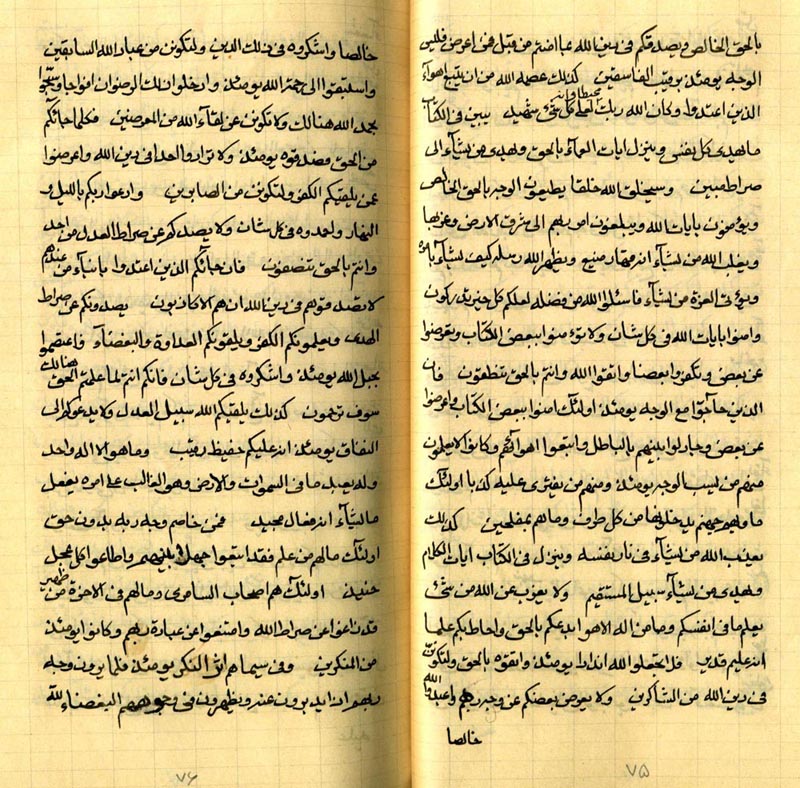 بالحق الخالص ويصدقكم فى دين الله بما اضتم من قبل فمن اعرض فلليس
الوجه يومئذ برقيب الفاسقين كذلك عصمه الله من ان يتبع اهوآء
الذين اعتدوا وكان الله ربك لعلى كل شىء محيطا وانه شهيد يبين فى الكتاب
ما لهدى كل نفس وينزل ايات العمآء بالحق ولهدى من يشآء الى
صراط مبين وسيخلق الله خلقا يطيعون الوجه بالحق الخالص
ويؤمنون بايات الله ويبلغون امر ربهم الى شرق الارض وغربها
ويغلب الله من يشآء انه قهار منيع ويظهر الله رسله كيف يشآء بامره
ويؤتى العزة من يشآء فاسئلوا الله من فضله لعلكم كل حين تذكرون
وامنوا بايات الله فى كل شان ولا تؤمنوا ببعض الكتاب وتعرضوا
عن بعض وتكفروا بعضا واتقوا الله وانتم بالحق تنطقون فان
الذين حآجوا مع الوجه يومئذ اولئك امنوا ببعض الكتاب واعرضوا
عن بعض وجادلوا بلنهم بالباطل واتبعوا اهوآئهم وكانوا لا يعلمون
منهم من يسب الوجه يومئذ ومنهم من يفترى عليه كذبا اولئك
ماويهم جهنم يدخلونها من كل طرف وما هم بمفلحين كذلك
يعذب الله من يشآء فى نار نفسه وينزل فى الكتاب ايات الكلام
ولهدى من يشآء سبيل المستقيم ولا يعزب عن الله من شىء
يعلم ما فى انفسكم وما من اله الا هو ابدعكم بالحق واحاط بكم علما
انه عليم قدير فلا تجعلوا لله اندادا يومئذ واتقوه بالحق ولتكونن
فى دين الله من الشاكرين ولا يعرض بعضكم عن وجه ربهم واعبدوا الله
خالصا
٧٥
خالصا واشكروه فى ذلك الدين ولتكونن من عباد الله السابقين
واستبقوا الى جنة الله يومئذ وادخلوا ذلك الرضوان افواجا وسبحوا
بحمد الله هنالك ولا تكونن عن لقآء الله من المعرضين فكلما جائكم
من الحق فضد قوه يومئذ ولا ترادوا احدا فى دين الله واعرضوا
عمن يلقيكم الكفر ولتكونن من الصابرين وادعوا ربكم بالليل و
النهار ولتعبدوه فى كل شان ولا يصدكم عن صراط العدل من احد
وانتم بالحق تنصفون فان جآئكم الذين اعتدوا باشيآء من عندهم
لا تصدقوهم فى دين الله انهم الا كاذبون يصدونكم عن صراط
الهدى ويعلمونكم الكفر ويلقونكم العداوة والبغضآء فاعتصموا
بحبل الله يومئذ واشكروه فى كل شان فانكم انتم لما علمتم الحق هنالك
سوف ترحمون كذلك يلقيكم الله سبيل العدل ولا يدعوكم الى
النفاق يومئذ انه عليكم حفيظ رقيب وما هو الا اله واحد
وله يعبد ما فى السموات والارض وهو الغالب على امره يفعل
ما يشآء انه فعال مجيد فمن خاصم وجه ربه بدون حق
اولئك ما لهم من علم فقد اتبعوا جهل انفسهم واطاعوا كل عجل
حنيذ اولئك هم اصحاب السامرى وما لهم فى الاخرة من ظهير
قد زاغوا عن صراط الله وامتنعوا عن عبادة ربهم وكانوا يومئذ
من المنكرين وفى سيماهم اثر النكر يومئذ فلما يرون وجه
ربهم اذا يدبرون عنه ويظهرون فى وجوههم البغضاء لله
٧٦